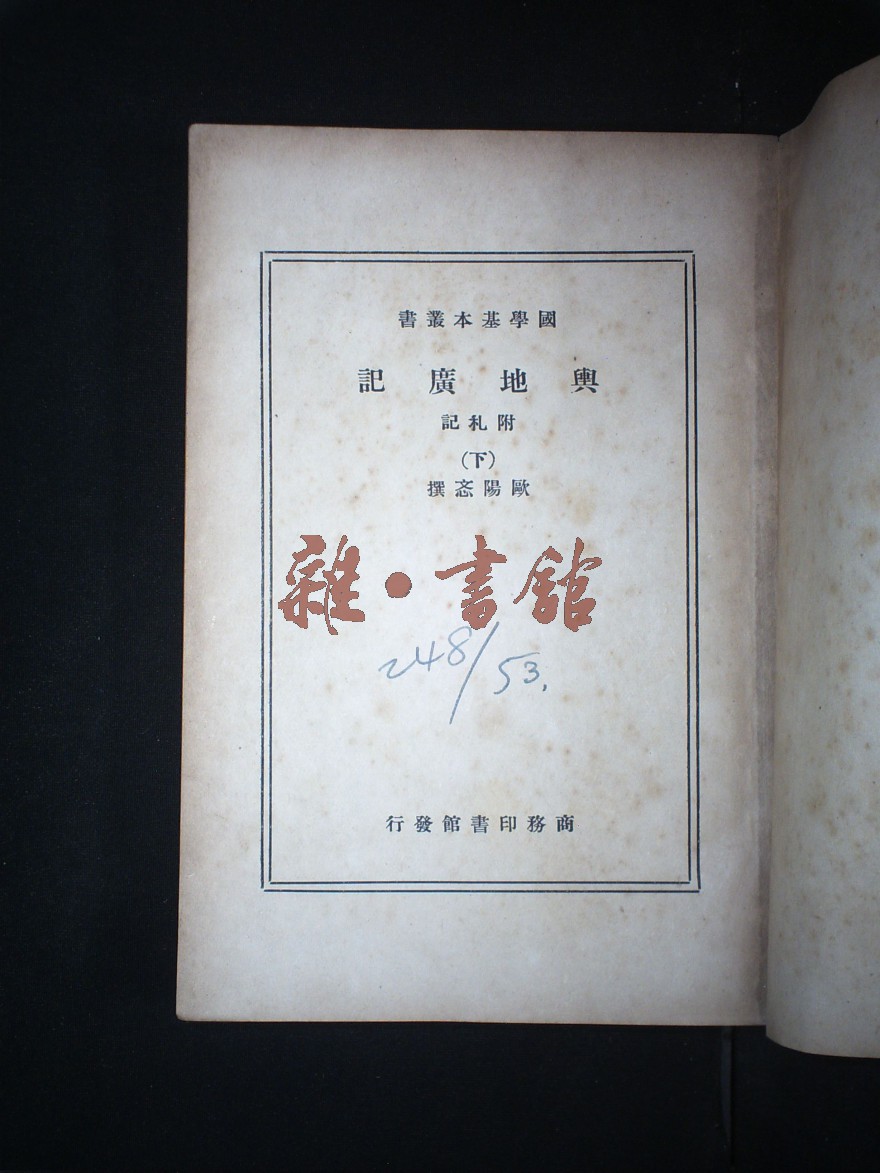 國學基本叢書
輿地廣記
附札記
(下)
歐陽忞撰
雜·書館
248/53.
商務印書館發行